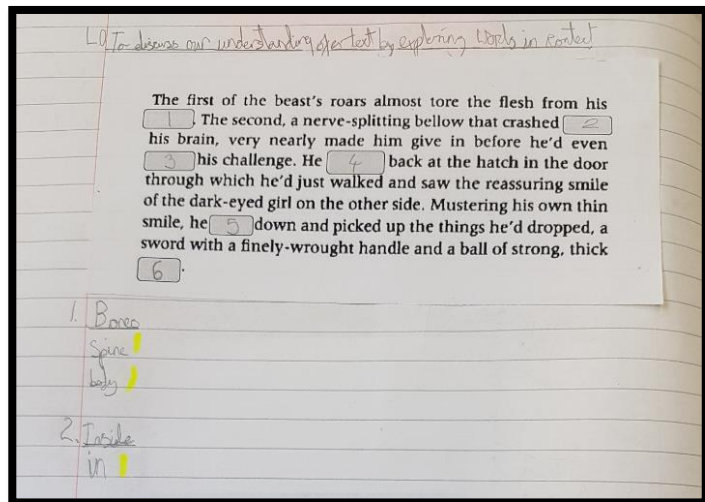 LO To discuss our understanding of a text by exploring words in context
The first of the beast's roars almost tore the flesh from his
1. The second, a nerve-splitting bellow that crashed 2
his brain, very nearly made him give in before he'd even
3 his challenge. He 4 back at the hatch in the door
through which he'd just walked and saw the reassuring smile
of the dark-eyed girl on the other side. Mustering his own thin
smile, he 5 down and picked up the things he'd dropped, a
sword with a finely-wrought handle and a ball of strong, thick
6.
1. Bones
Spine
body
2. Inside
in